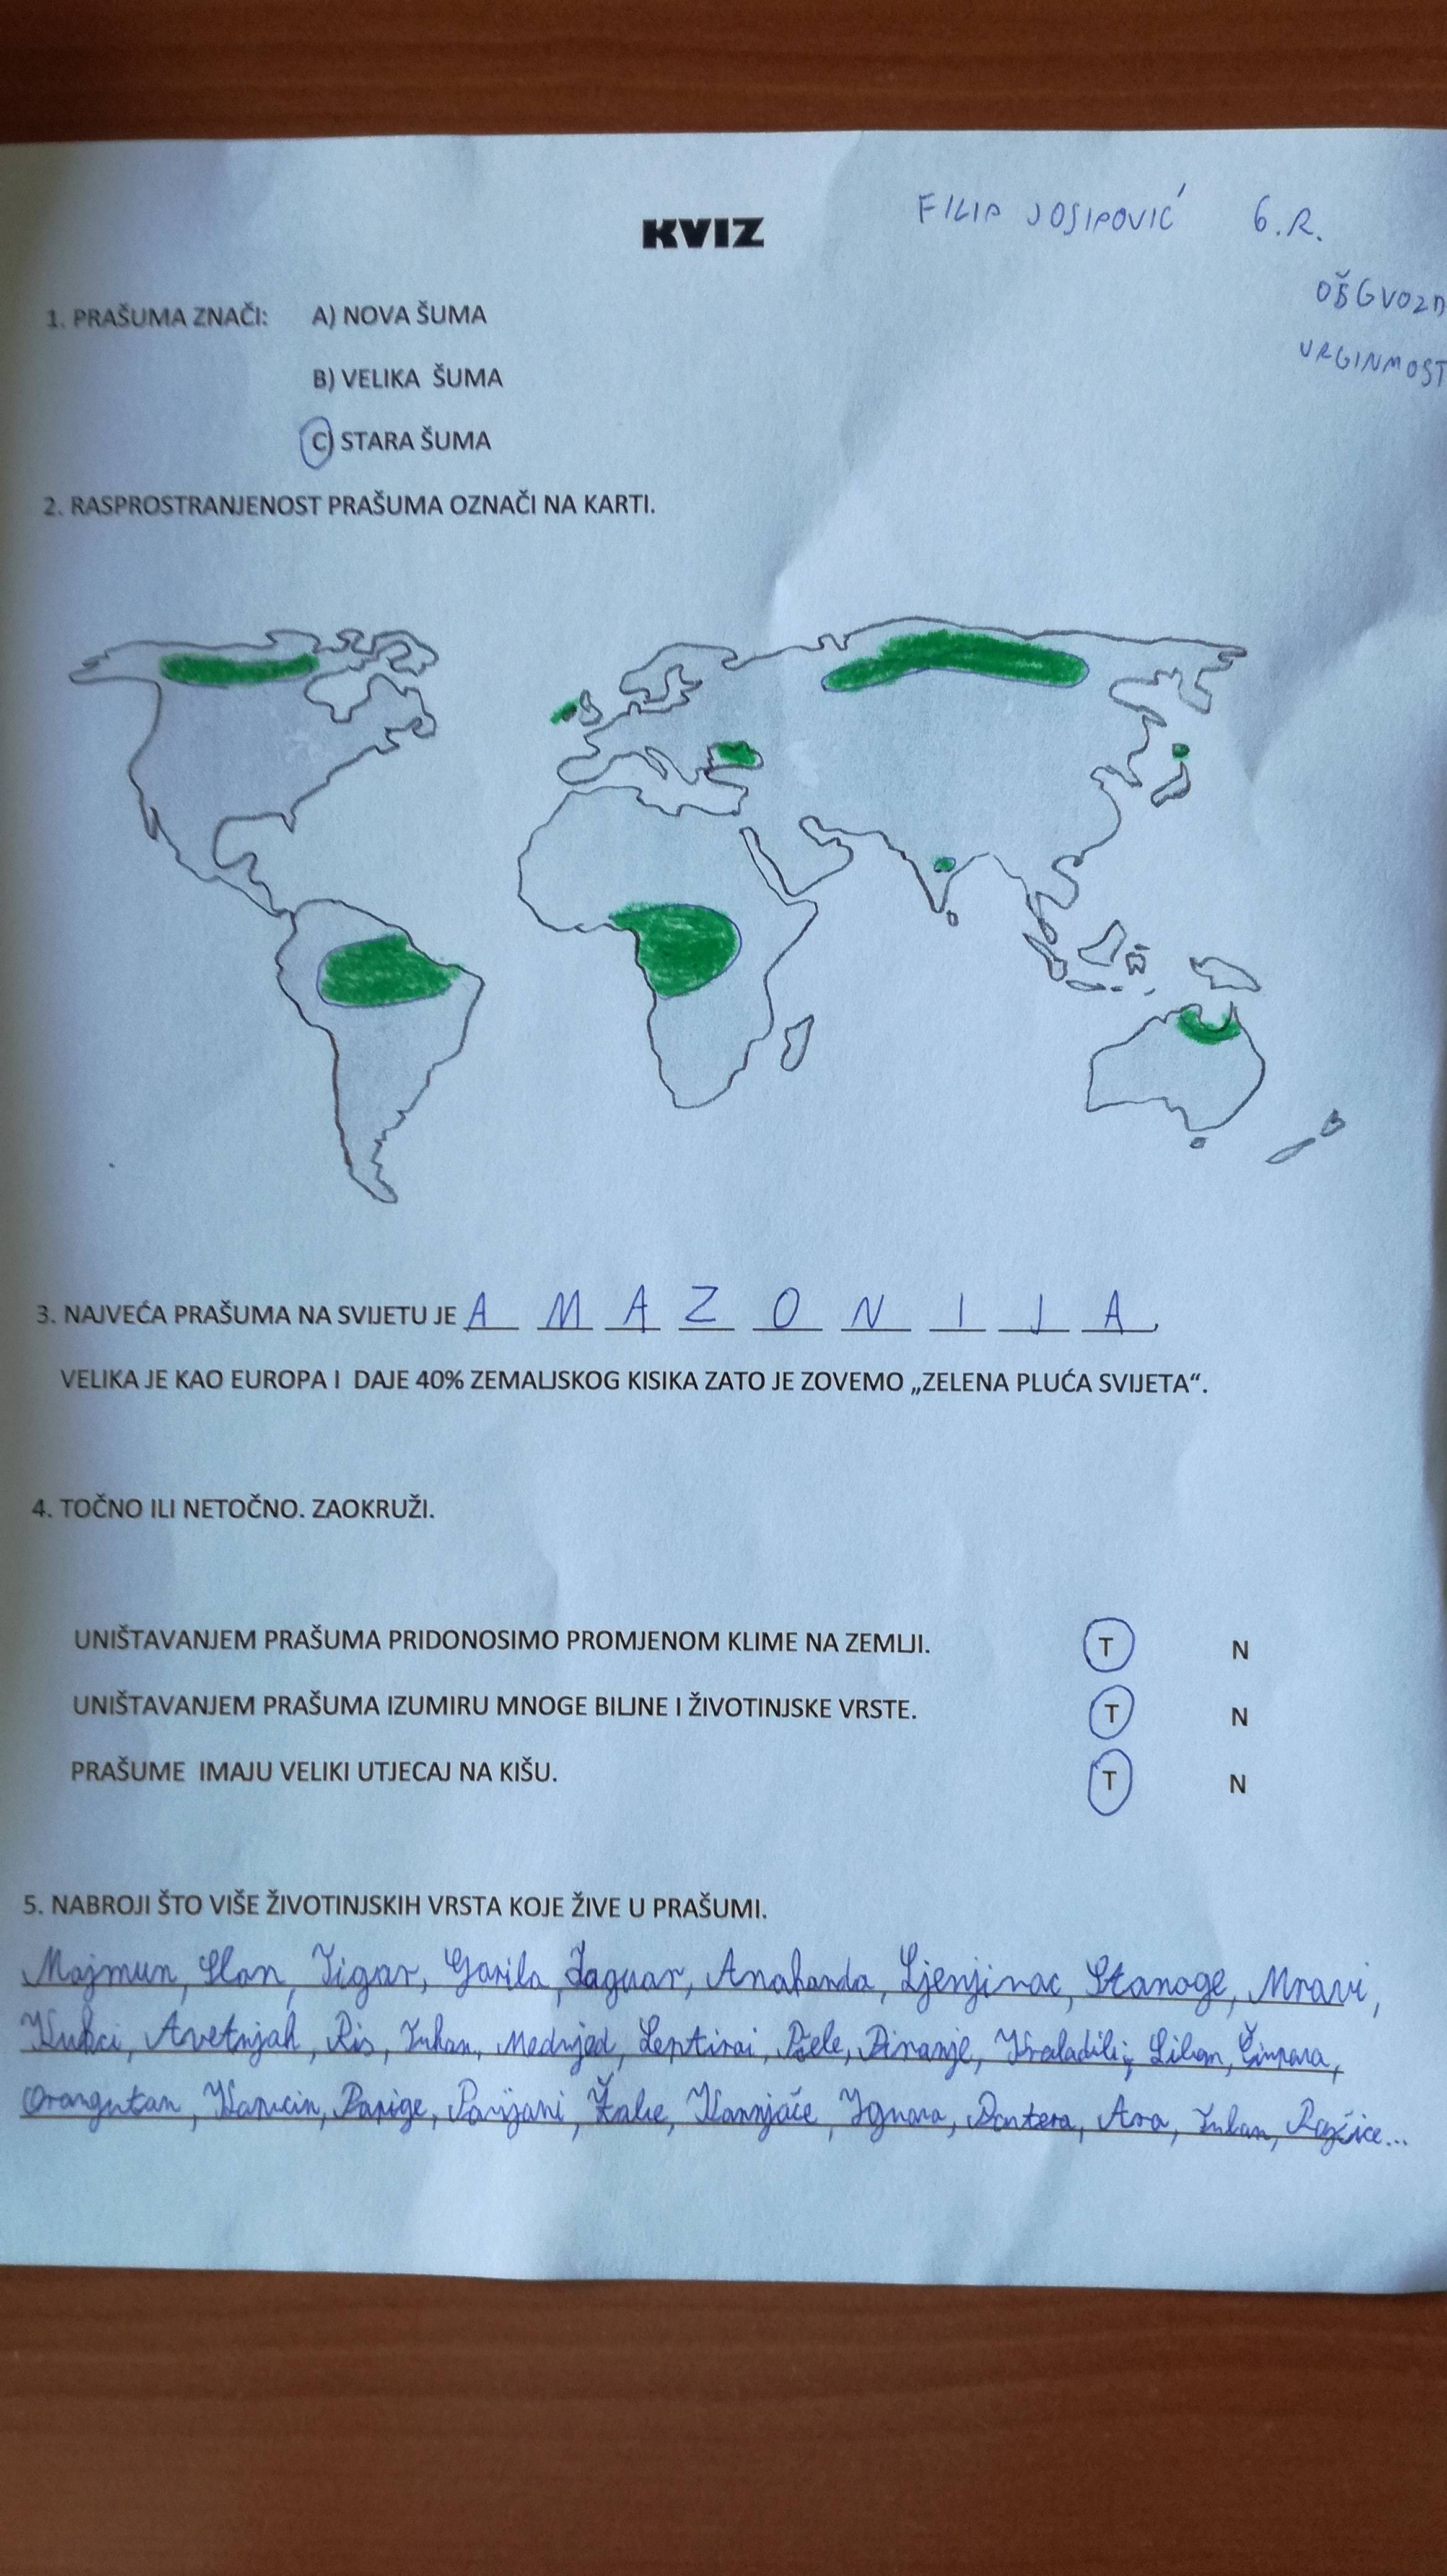 KVIZ
FILIP JOSIPOVIĆ 6.R.
OŠ GVOZD
VRGINMOST
1. PRAŠUMA ZNAČI: A) NOVA ŠUMA
B) VELIKA ŠUMA
C) STARA ŠUMA
2. RASPROSTRANJENOST PRAŠUMA OZNAČI NA KARTI.
3. NAJVEĆA PRAŠUMA NA SVIJETU JE A M A Z O N I J A,
VELIKA JE KAO EUROPA I DAJE 40% ZEMALJSKOG KISIKA ZATO JE ZOVEMO „ZELENA PLUĆA SVIJETA“.
4. TOČNO ILI NETOČNO. ZAOKRUŽI.
UNIŠTAVANJEM PRAŠUMA PRIDONOSIMO PROMJENOM KLIME NA ZEMLJI. T N
UNIŠTAVANJEM PRAŠUMA IZUMIRU MNOGE BILJNE I ŽIVOTINJSKE VRSTE. T N
PRAŠUME IMAJU VELIKI UTJECAJ NA KIŠU. T N
5. NABROJI ŠTO VIŠE ŽIVOTINJSKIH VRSTA KOJE ŽIVE U PRAŠUMI.
Majmun, Slon, Tigar, Gorila, Jaguar, Anakonda, Ljenjivac, Stonoge, Mravi,
Kukci, Ris, Tukan, Medvjed, Leptiri, Pčele, Piranje, Krokodili,
Orangutan, Kapucin, Papige, Pavijani, Žabe, Kornjače, Iguana, Pantera, Ara, Tukan,